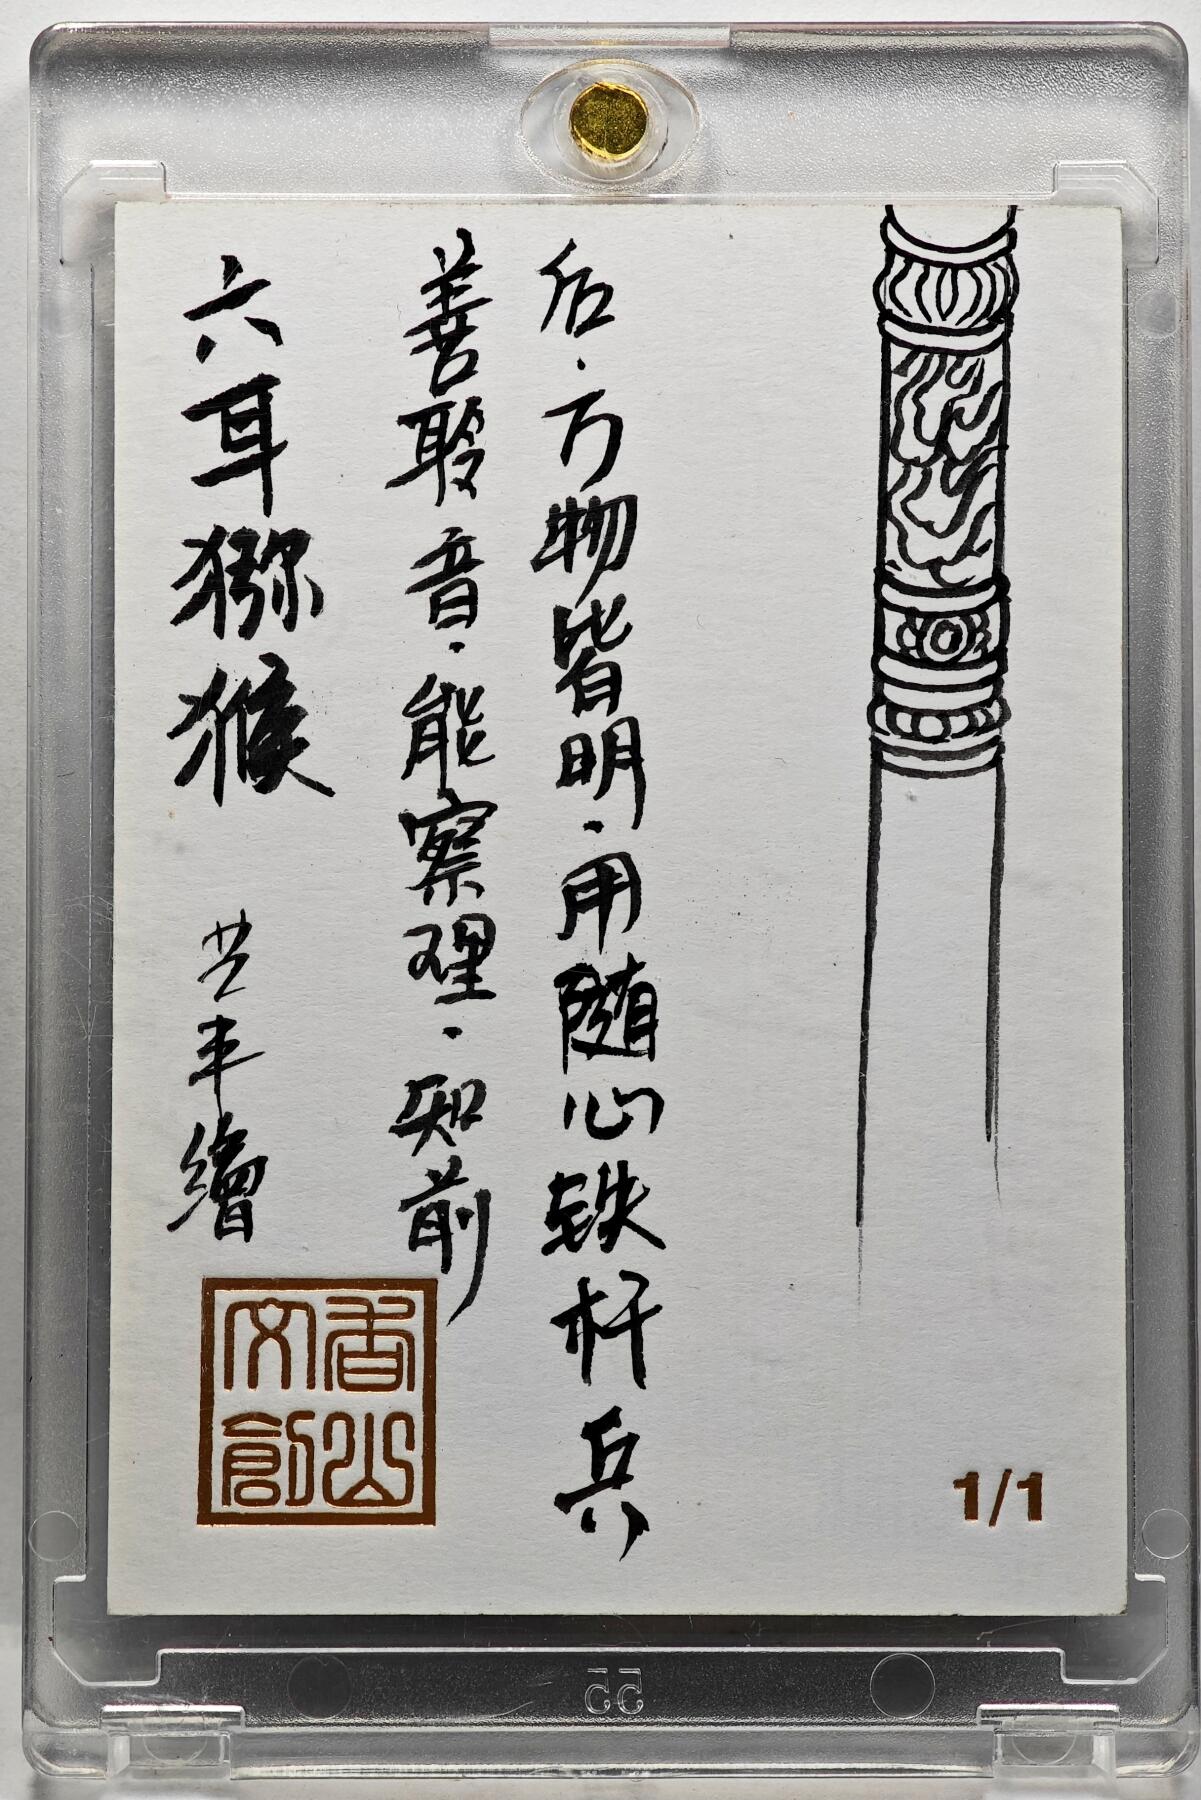 六耳猕猴
艺丰繪
善聆音·能察理·知前
后·万物皆明·用随心铁杆兵
香山文創
1/1
55